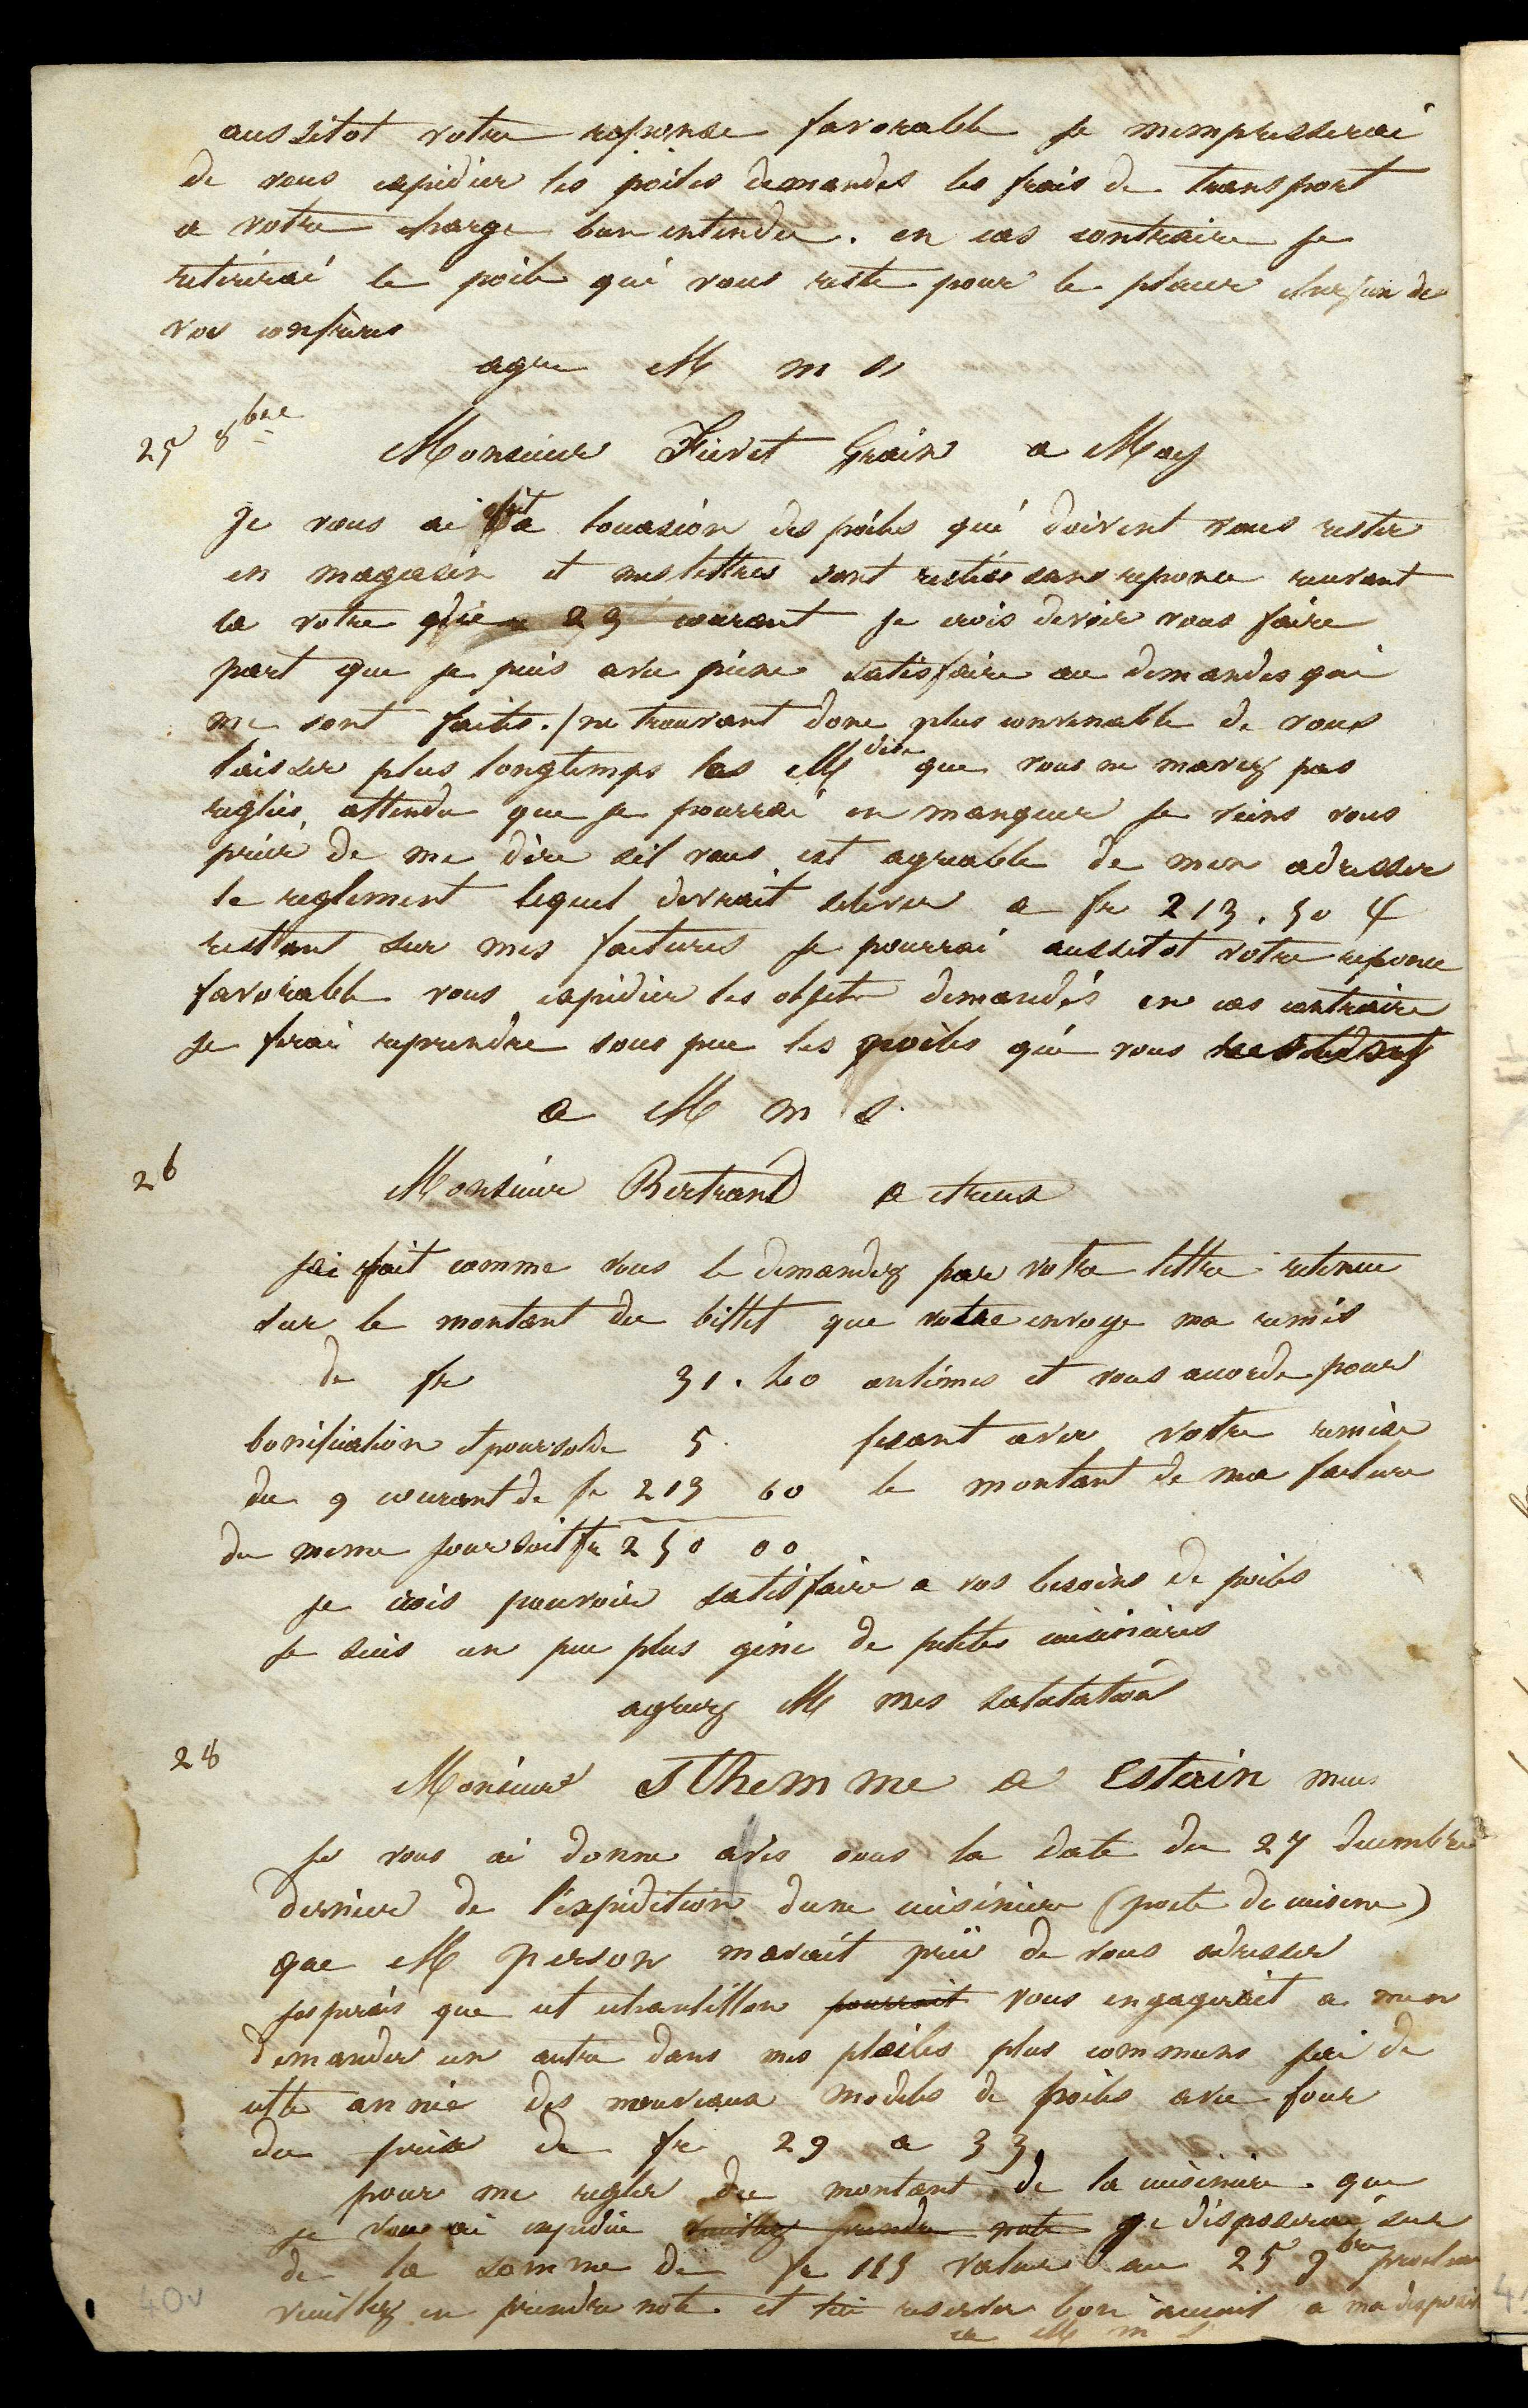 aussitot votre reponse favorable je mempresserai
de vous expedier les poiles demandes les frais de transport
a votre charge bien entendu . en cas contraire je
retirerai le poile qui vous reste pour le placer chez un de
vos confreres
agre M m s
25 8bre
Monsieur Fievet Grain a Moy
Je vous ai a loccasion des poiles qui doivent vous rester
en magasin et mes lettres sont restées sans reponse recevant
la votre 23 courant je crois devoir vous faire
part que je puis avec peine satisfaire au demandes qui
me sont faites . ne trouvant donc plus convenable de vous
laisser plus longtemps les Mdise que vous ne mavez pas
reglées attendu que je pourrai en manquer je viens vous
prier de me dire sil vous est agreable de men adresser
le reglement lequel devrait selever a fr 213 . 50 c
restant sur mes factures je pourrai aussitot votre reponse
favorable vous expedier les objets demandés en cas contraire
je ferai reprendre sous peu les poiles qui vous
a M m s .
26
Monsieur Bertrand a
jai fait comme vous le demandez par votre lettre retenue
sur le montant du billet que votre envoye ma remis
de fr 31 . 40 centimes et vous accorde pour
bonification et pour solde 5 . fesant avec votre remise
du 9 courant de fr 213 60 le montant de ma facture
du meme jour soit fr 250 00
je crois pouvoir satisfaire a vos besoins de poiles
je suis un peu plus géné de petites cuisinieres
agreez M mes salutation
28
Monsieur Sthemme a Estain meus
je vous ai donne avis sous la date du 27 decembre
dernier de l'expedition dune cuisiniere (poele de cuisine)
que M person mavait prié de vous adresser
jesperais que cet echantillon pourrait vous engagerait a men
demander un autre dans mes ploiles plus communs jai de
cette année des nouveaux modeles de poiles avec four
du prix de fr 29 a 33
pour me regler du montant de la cuisiniere . que
je vous ai expedié veuillez prendre note je disposerai sur
de la somme de fr 115 valeur au 25 9bre prochain
veuillez en prendre note . et reserver bon accueil a ma disposit
a M m s
40v